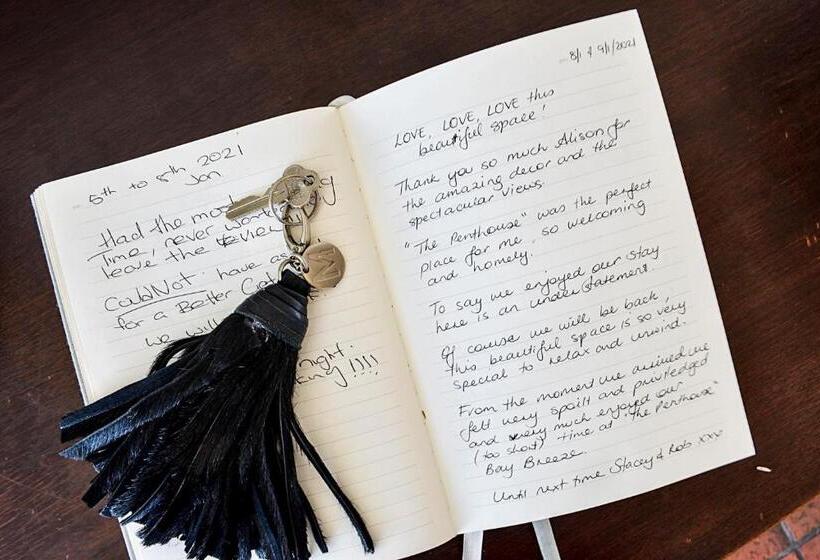 5th to 8th 2021
Jan
Had the most
Time, never
leave the
CouldNot have
for a Better
we will
night.
!!!!
M
8/1 & 9/1/2021
LOVE, LOVE, LOVE this
beautiful space!
Thank you so much Alison for
the amazing decor and the
spectacular views.
"The Penthouse" was the perfect
place for me, so welcoming
and homely.
To say we enjoyed our stay
here is an understatement.
Of course we will be back,
this beautiful space is so very
special to relax and unwind.
From the moment we arrived we
felt very spoilt and priviledged
and very much enjoyed our
(too short) time at "The Penthouse"
Bay Breeze.
Until next time Stacey & Rob xxx